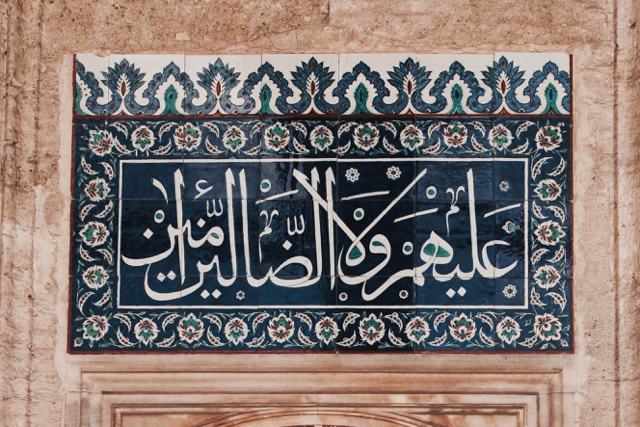 عليهم ولا الضالين آمين